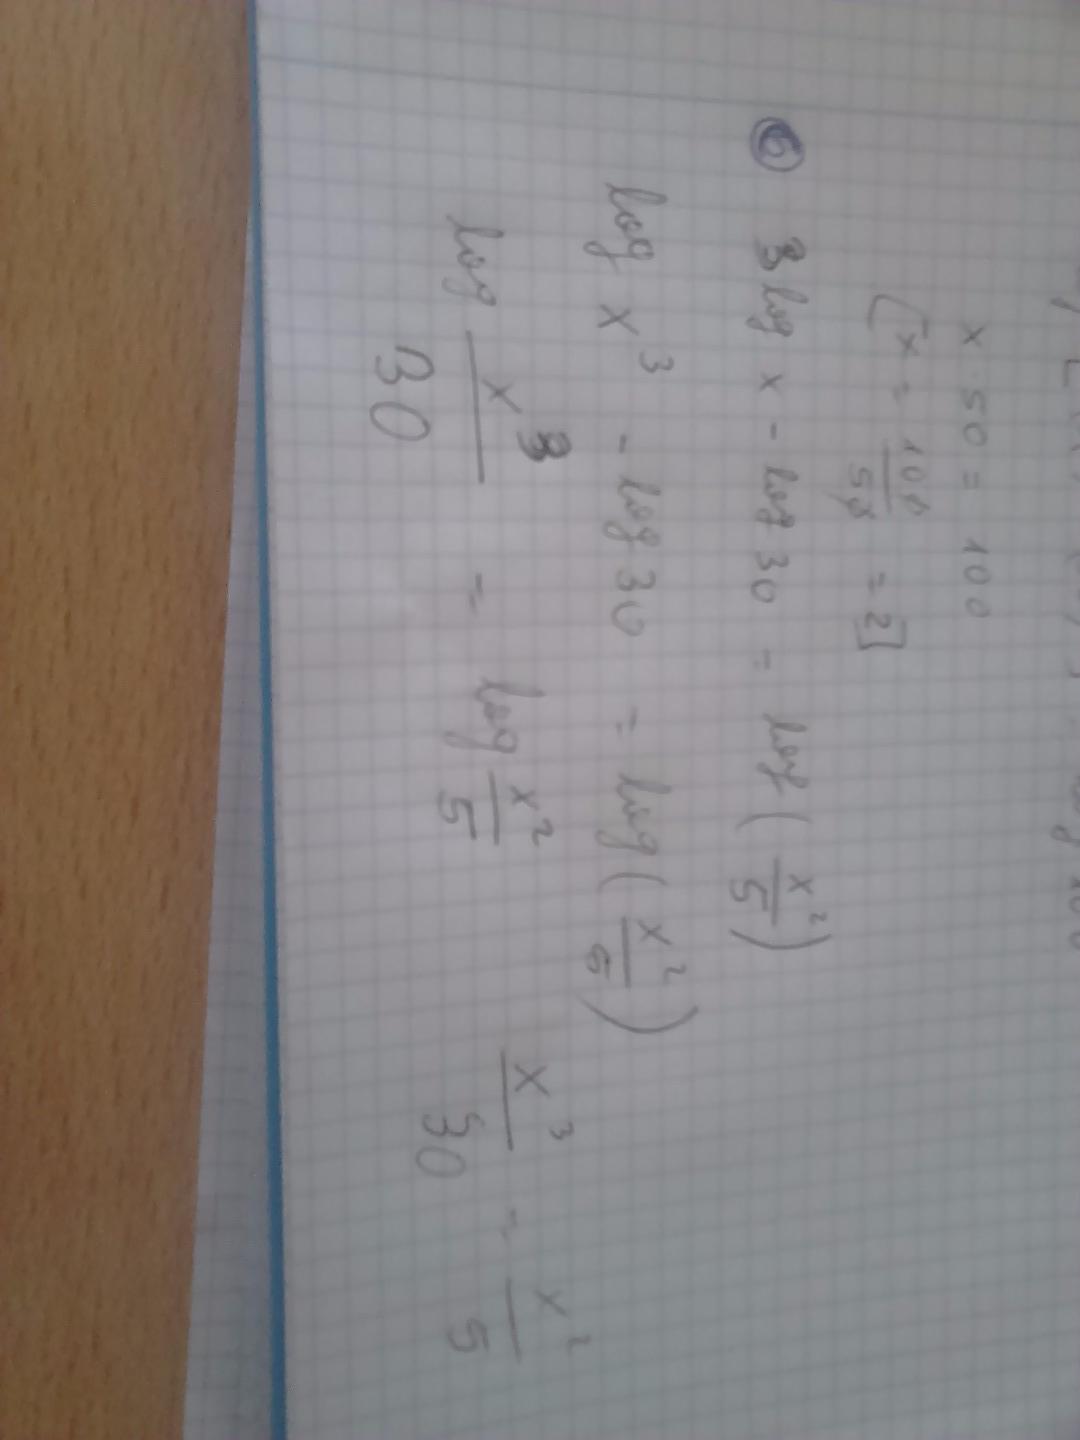 x · 50 = 100
[x = 100/50 = 2]
6 3 log x - log 30 = log (x²/5)
log x³ - log 30 = log (x²/5)
log x³/30 = log x²/5 x³/30 = x²/5